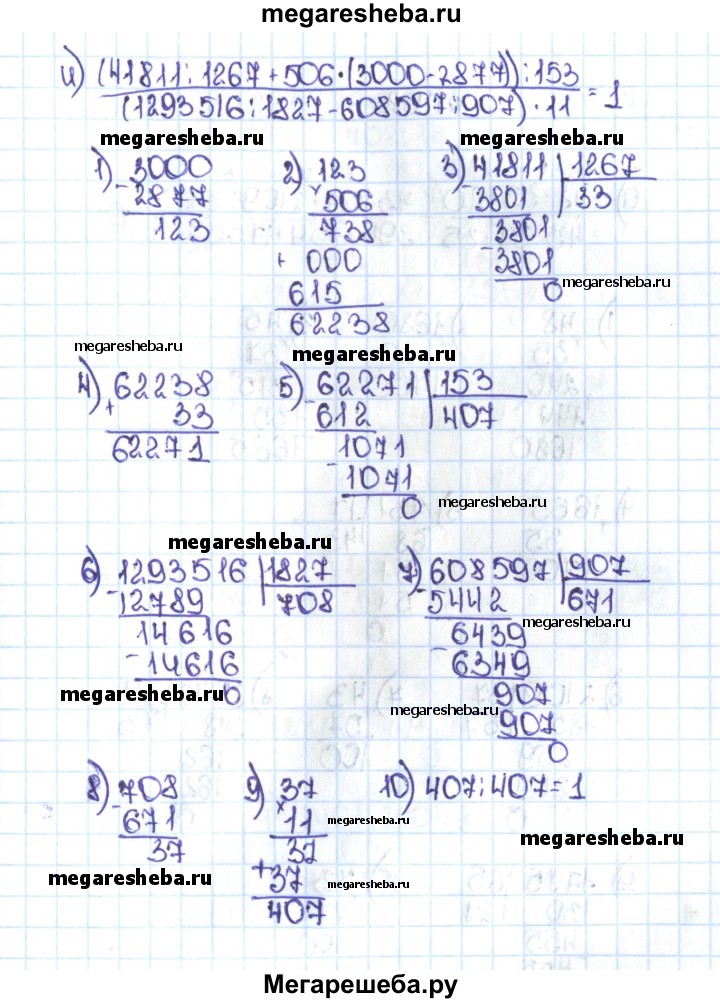 megaresheba.ru
и) (41811:1267+506·(3000-2877)):153
(1293516:1827-608597:907)·11 = 1
megaresheba.ru megaresheba.ru
1) 3000
- 2877
123
2) 123
× 506
738
+ 000
615
62238
3) 41811 | 1267
- 3801 | 33
3801
- 3801
0
megaresheba.ru
megaresheba.ru
megaresheba.ru
4) 62238
+ 33
62271
5) 62271 | 153
- 612 | 407
1071
- 1071
0
megaresheba.ru
megaresheba.ru
6) 1293516 | 1827
- 12789 | 708
14616
- 14616
0
megaresheba.ru
7) 608597 | 907
- 5442 | 671
6439
- 6349
907
- 907
0
megaresheba.ru
megaresheba.ru
8) 708
- 671
37
megaresheba.ru
9) 37
× 11
37
+ 37
407
megaresheba.ru
megaresheba.ru
10) 407:407=1
megaresheba.ru
Мегарешеба.ру